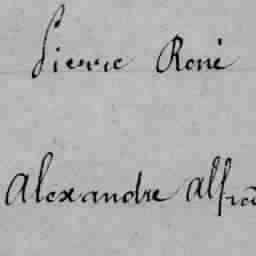 Pierre René
Alexandre Alfred